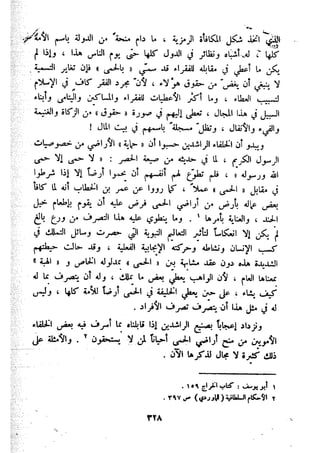 الفيء اتخذ شكل المكافأة الرمزية ، ما دام منحة من الدولة باسم الأمة
كلها ؛ له أشباه ونظائر في الدول كلها حتى يوم الناس هذا ، وإذا لم
يكن ما أعطي في مقابله للفقراء قد سمي « بالحمى » فإن تغاير التسمية
لا ينبغي أن يغض من حقوق هؤلاء ، لأن مجرد الفقر كاف في الإسلام
لتسبيب العطاء ، وما أكثر الأعطيات للفقراء والمساكين واليتامى وأبناء
السبيل في هذا المجال ، تعطى إليهم في صورة « حقوق » من الزكاة والغنيمة
والفيء والأنفال ، وتظل مسجلة باسمهم في بيت المال !
ويبدو أن الخلفاء الراشدين حسبوا أن « حماية » الأراضي من خصوصيات
الرسول الكريم ، لما في حديثه من صيغة الحصر : « لا حمى إلا حمى
الله ورسوله » ، فلم تطوع لهم أنفسهم أن يحموا أرضاً إلا إذا شرطوا
في مقابل « الحمى » عملاً ، كما رووا عن عمر بن الخطاب أنه لما كافأ
بعض عماله بأرض من أراضي الحمى فرض عليه أن يقوم بإطعام خيل
الجند ، والعناية بأمرها ١ . وما ينطوي عليه هذا التصرف من ورع بالغ
لم يكن إلا انعكاساً لتأثير التعاليم النبوية التي حصرت وسائل التملك في
كسب الإنسان ونشاطه وحركته الإيجابية الفعلية ، وقد حالت حيطتهم
الشديدة هذه دون عقد مشابهة بين « الحمى » بمدلوله الخاص و « الهبة »
بمعناها العام ، لأن الواهب يعطي بعض ما يملك ، وله أن يتصرف بما له
كيف يشاء ، على حين يعطي الخليفة في الحمى أرضاً للأمة كلها ، وليس
له في مثل هذا أن يتصرف تصرف الأفراد .
ونزداد إعجاباً بصنيع الراشدين إذا قابلناه بما أسرف فيه بعض الخلفاء
الأمويين من منح أراضي الحمى أحياناً لمن لا يستحقون ٢ . والأمثلة على
ذلك كثيرة لا مجال لذكرها الآن .
١ أبو يوسف : كتاب الخراج ١٥٩ .
٢ الأحكام السلطانية ( للماوردي ) ص ٣٩٧ .
٣٢٨